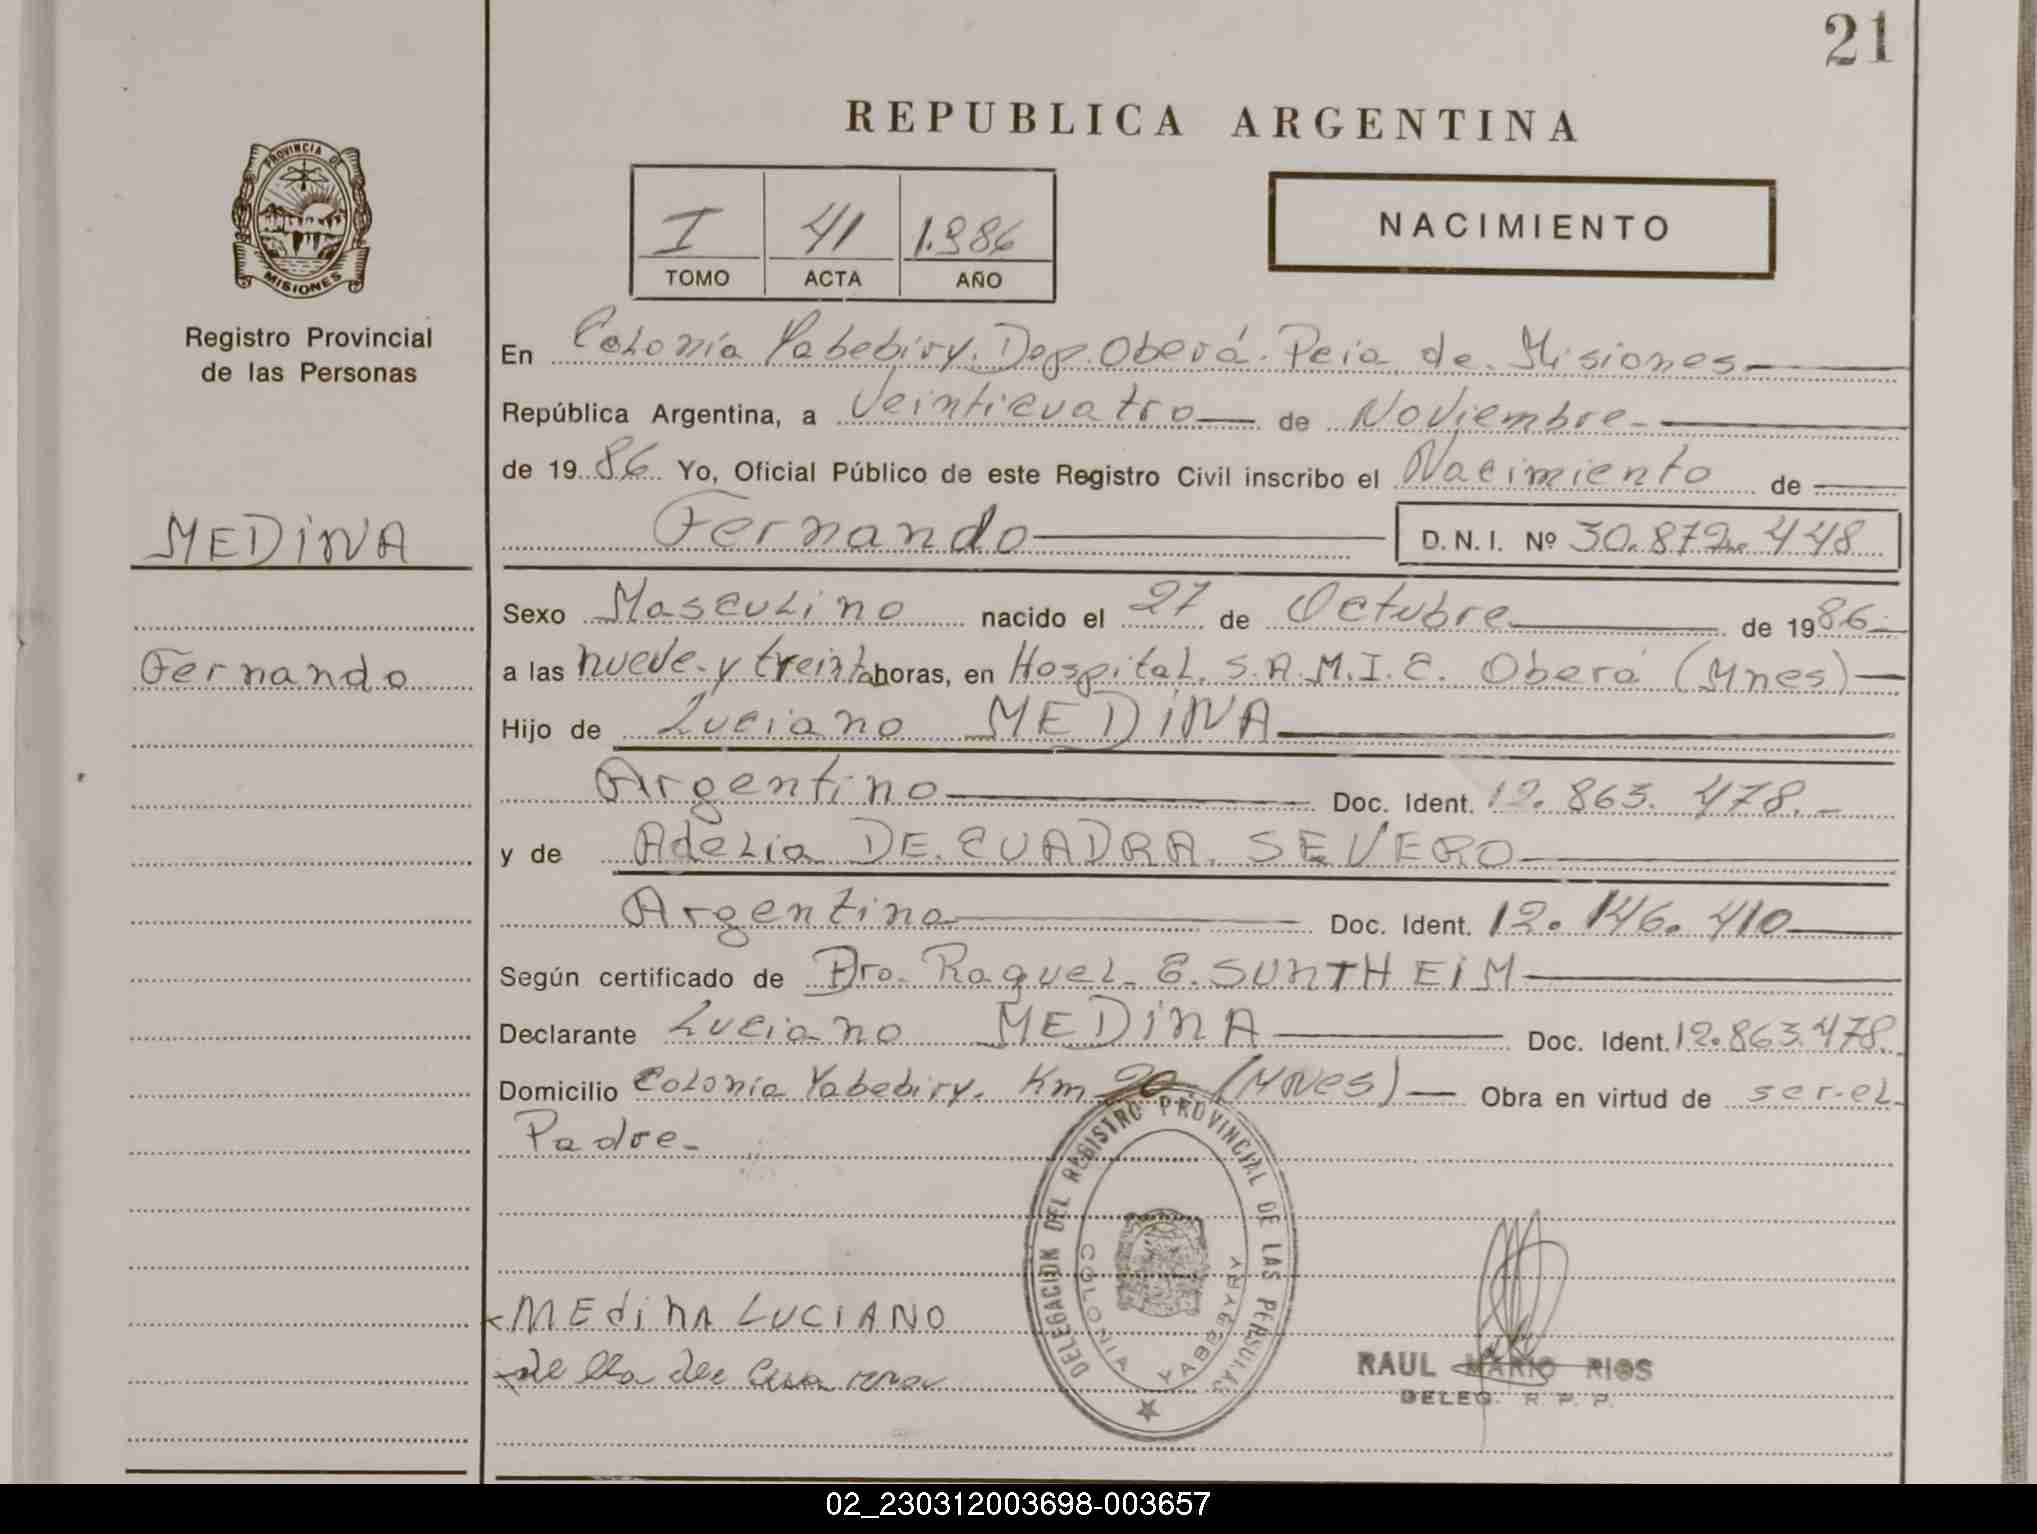 21
REPUBLICA ARGENTINA
PROVINCIA DE
MISIONES
Registro Provincial
de las Personas
I 41 1.986
TOMO ACTA AÑO
NACIMIENTO
En Colonía Yabebiry. Dep. Oberá. Pcia de. Misiones
República Argentina, a Veinticuatro de Noviembre
de 1986 Yo, Oficial Público de este Registro Civil inscribo el Nacimiento de
MEDiNA
Fernando D.N.I. Nº 30.872.448
Sexo Masculino nacido el 27 de Octubre de 1986
Fernando
a las nueve y treinta horas, en Hospital. S.A.M.I.C. Oberá (Mnes)
Hijo de Luciano MEDiNA
Argentino Doc. Ident. 12.863.478.
y de Adelia DE.CUADRA.SEVERO
Argentina Doc. Ident. 12.146.410
Según certificado de Dra. Raquel E. SUNTHEIM
Declarante Luciano MEDiNA Doc. Ident. 12.863.478.
Domicilio Colonia Yabebiry. Km (MNes) Obra en virtud de ser el
Padre
DELEGACION DEL REGISTRO PROVINCIAL DE LAS PERSONAS
COLONIA YABEBYRY
MEdiNA LUCIANO
RAUL MARIO RIOS
DELEG. R. P. P.
02_230312003698-003657